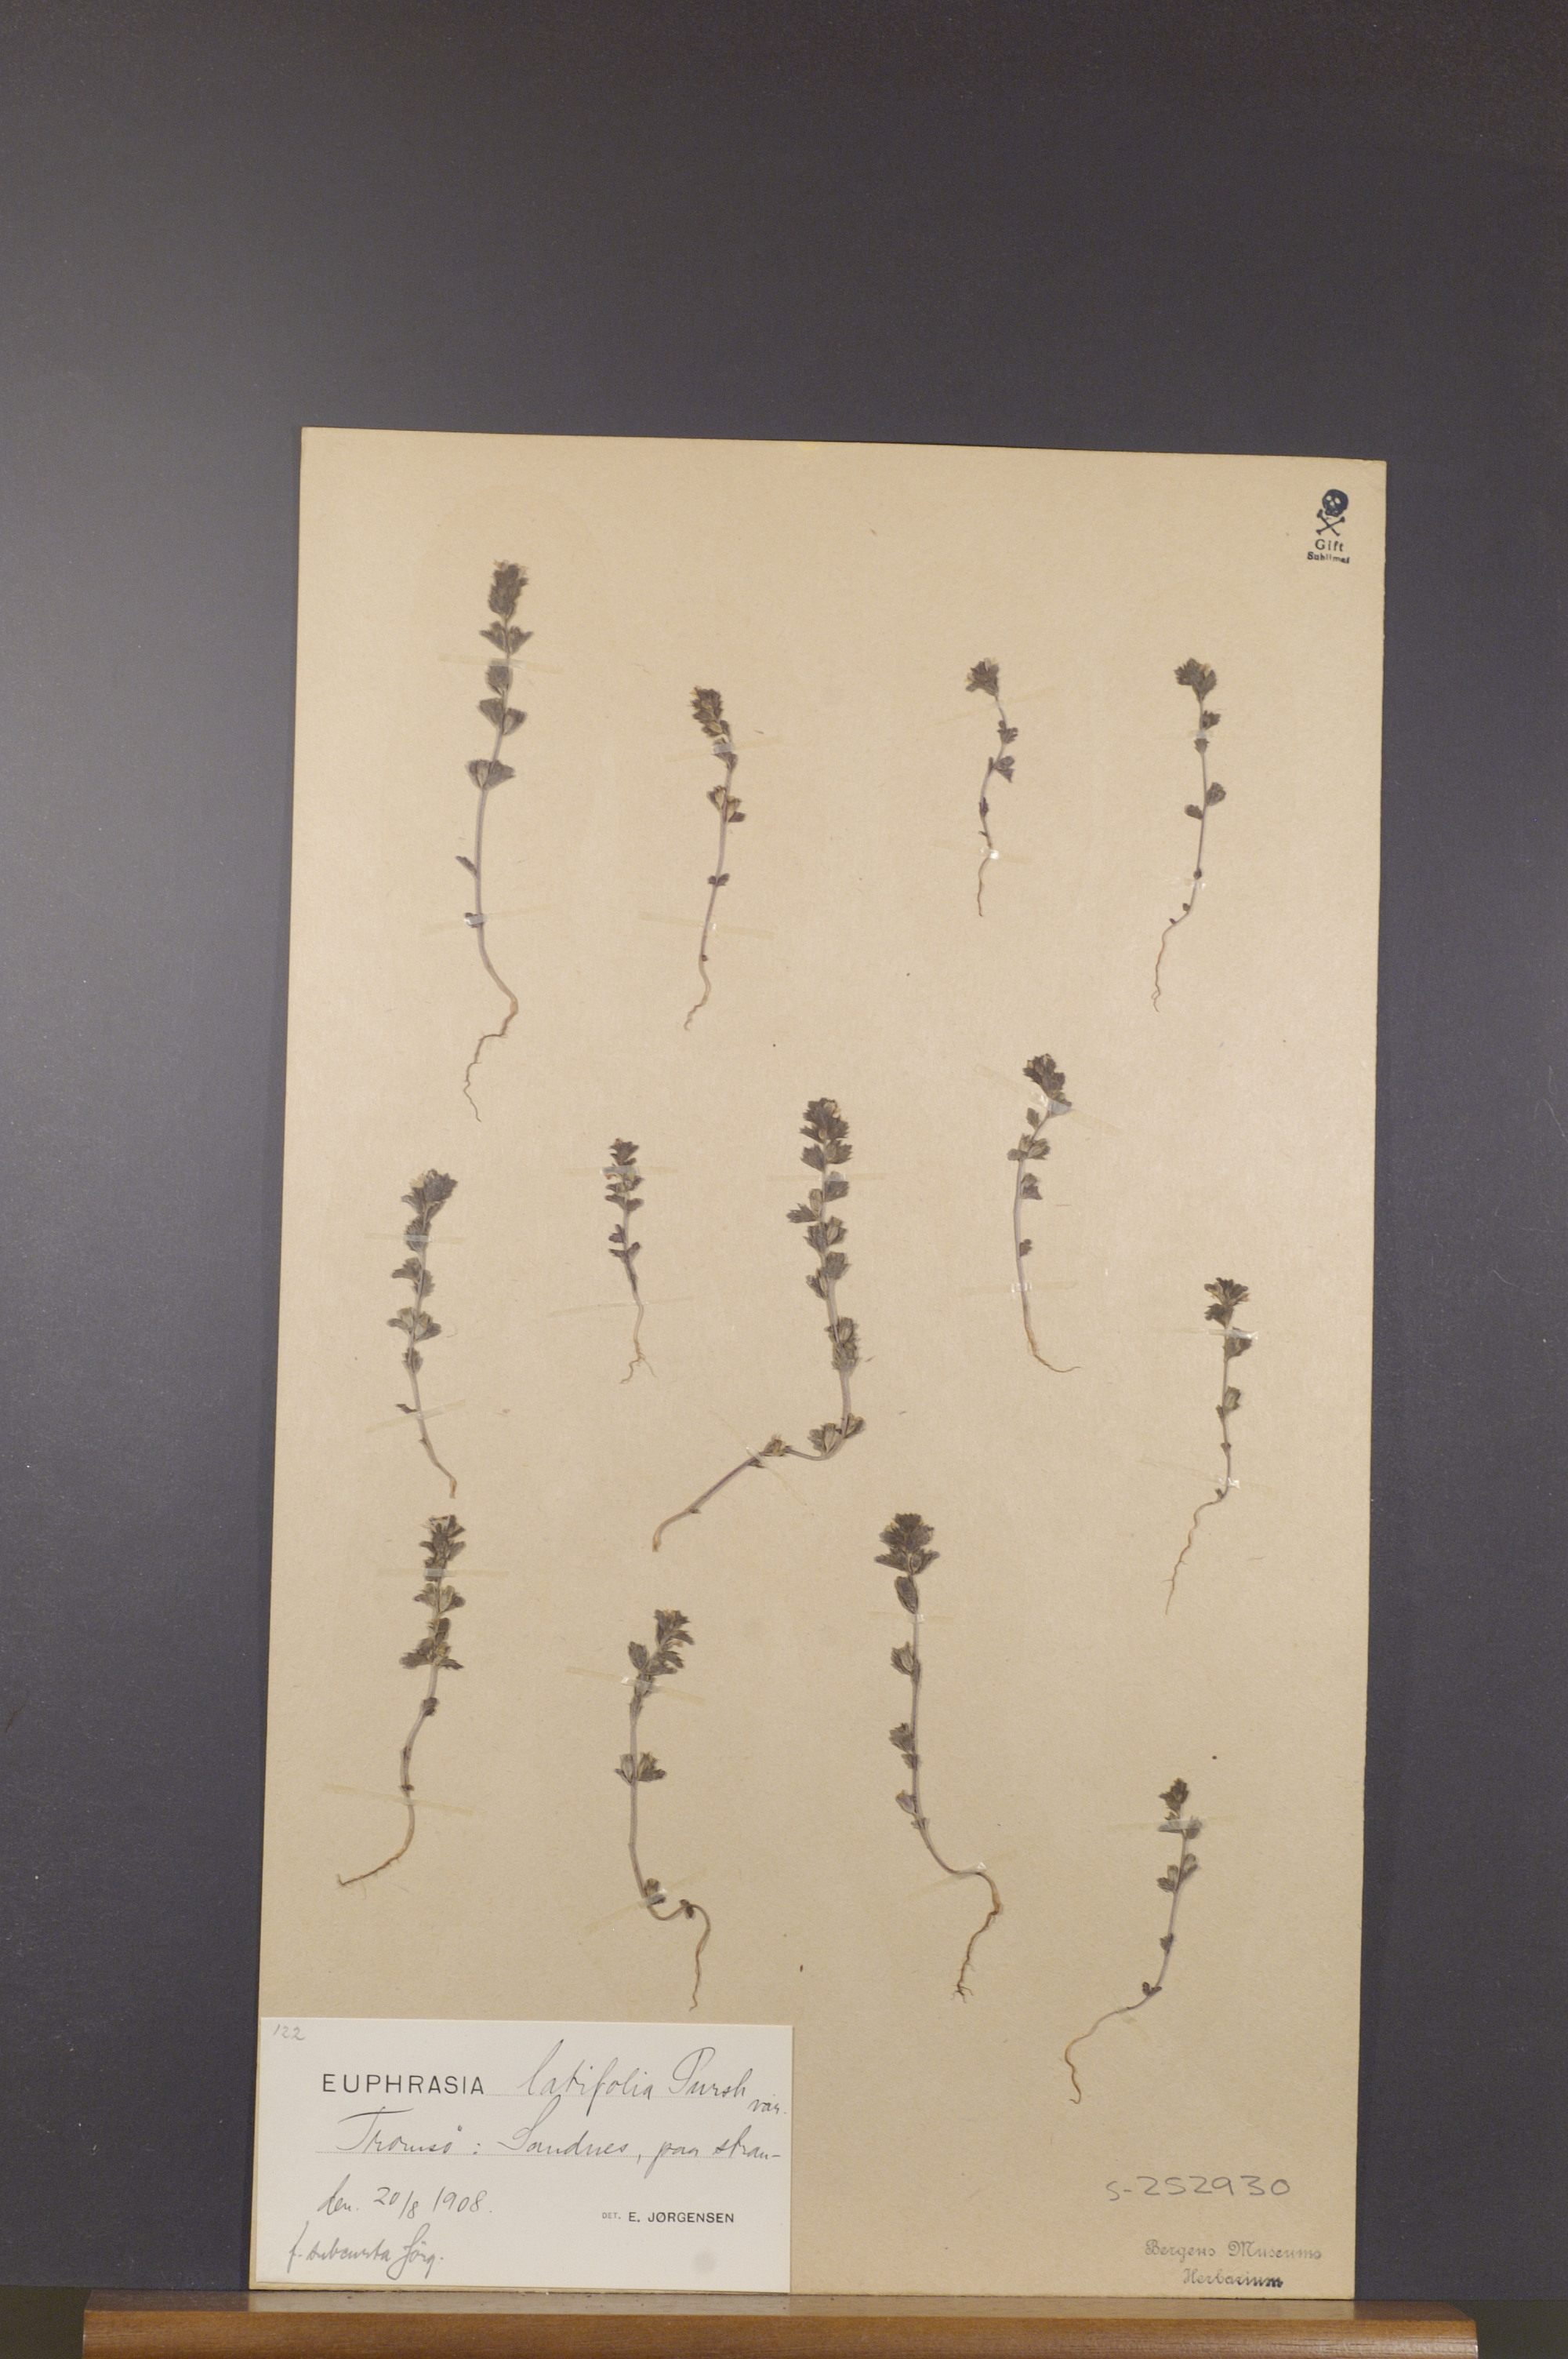 Gift
Sublimat
122
EUPHRASIA latifolia Pursh
var.
Tromsö: Sandnes, paa stran-
den. 20/8 1908.
DET. E. JØRGENSEN
f. subcurta Jörg.
S-252930
Bergens Museums
Herbarium